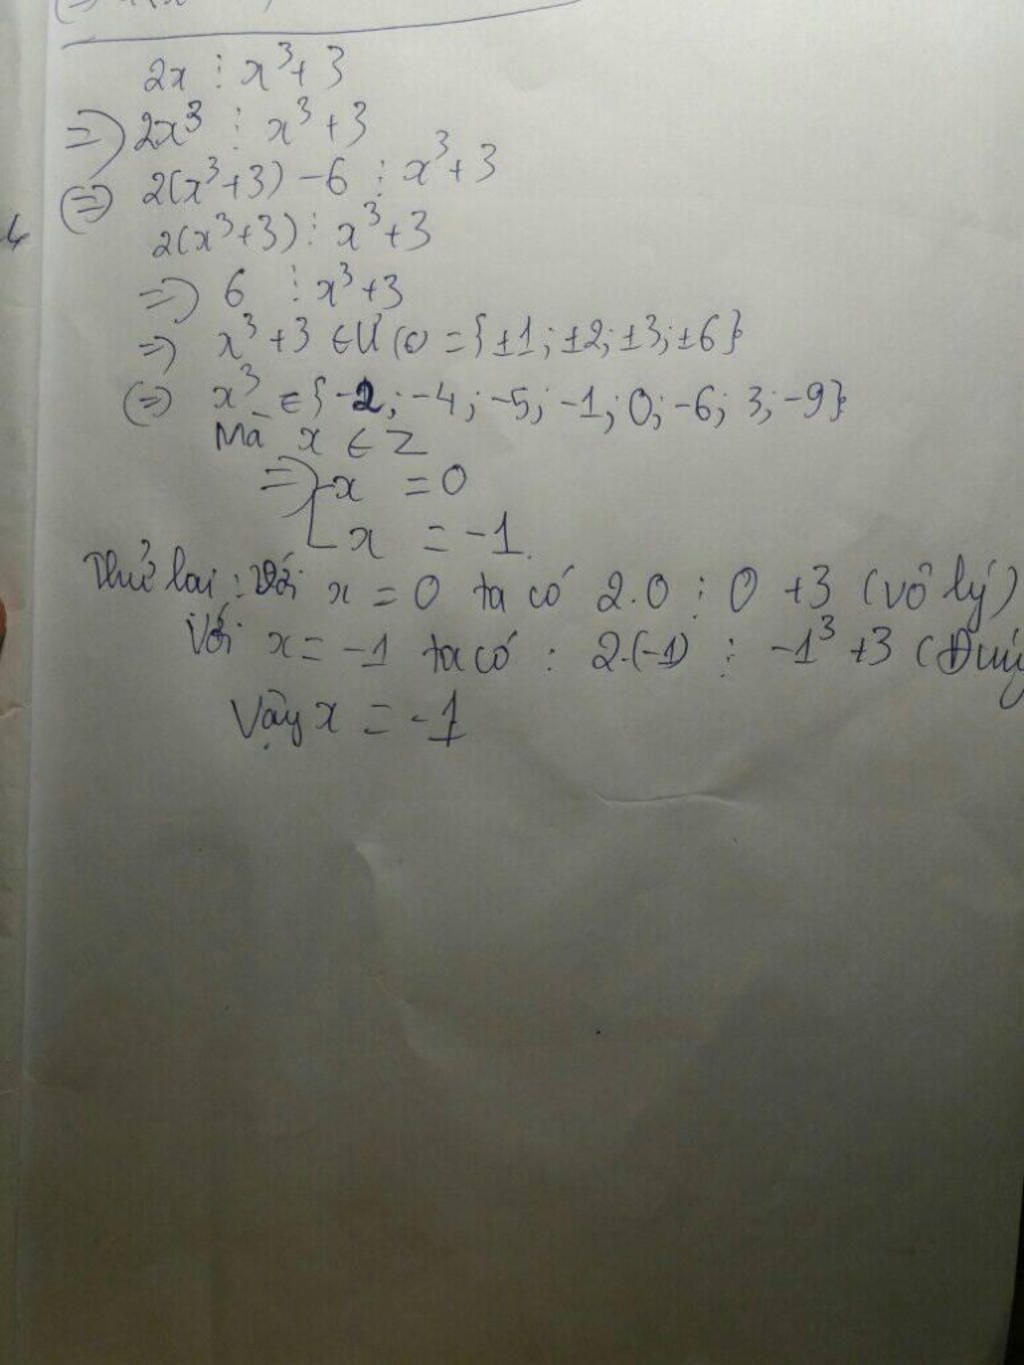 2x ⋮ x³+3
=> 2x³ ⋮ x³+3
(=) 2(x³+3) -6 ⋮ x³+3
2(x³+3) ⋮ x³+3
=> 6 ⋮ x³+3
=> x³+3 ∈ Ư(6) = {±1; ±2; ±3; ±6}
(=) x³ ∈ {-2; -4; -5; -1; 0; -6; 3; -9}
Mà x ∈ Z
=> [x = 0
x = -1.
Thử lại: Với x = 0 ta có 2.0 ⋮ 0 +3 (vô lý)
Với x = -1 ta có : 2.(-1) ⋮ -1³ +3 (Đún
Vậy x = -1